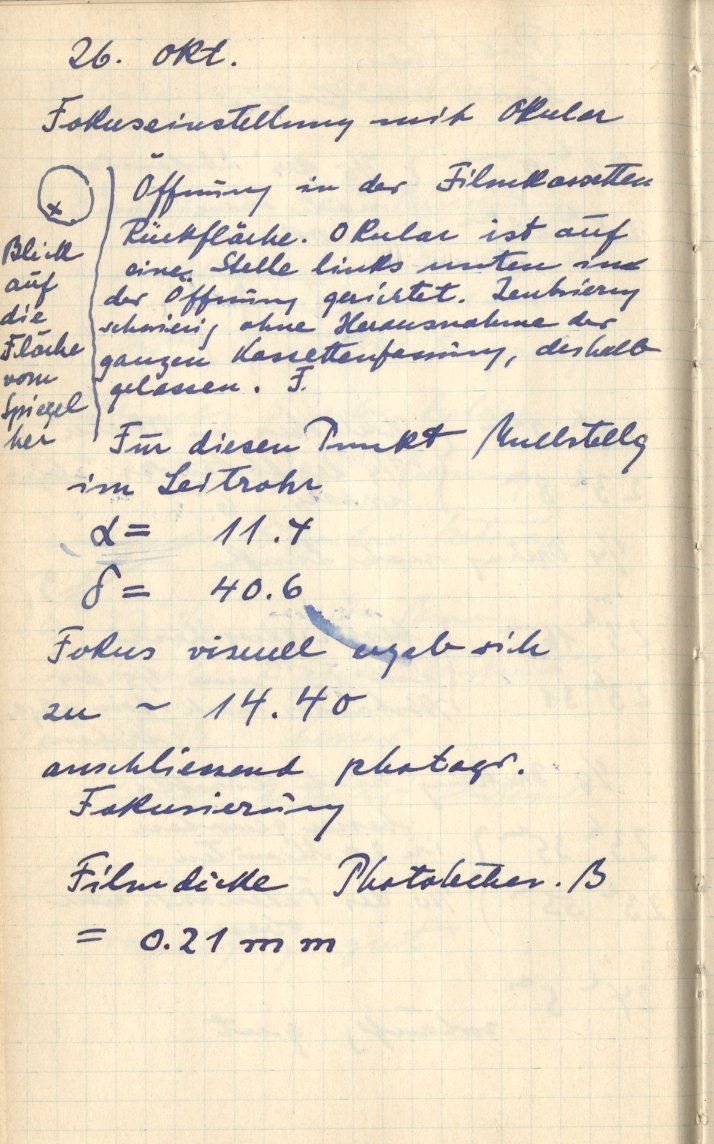 26. Okt.
Fokuseinstellung mit Okular
Blick
auf
die
Fläche
vom
Spiegel
her
Öffnung in der Filmkassetten
Rückfläche. Okular ist auf
eine Stelle links unten in
der Öffnung gerichtet. Zentrierung
schwierig ohne Herausnahme der
ganzen Kassettenfassung, deshalb
gelassen.
Für diesen Punkt Nullstellg
im Leitrohr
α = 11.4
δ = 40.6
Fokus visuell ergab sich
zu ~ 14.40
anschliessend photogr.
Fokusierung
Filmdicke B
= 0.21 mm